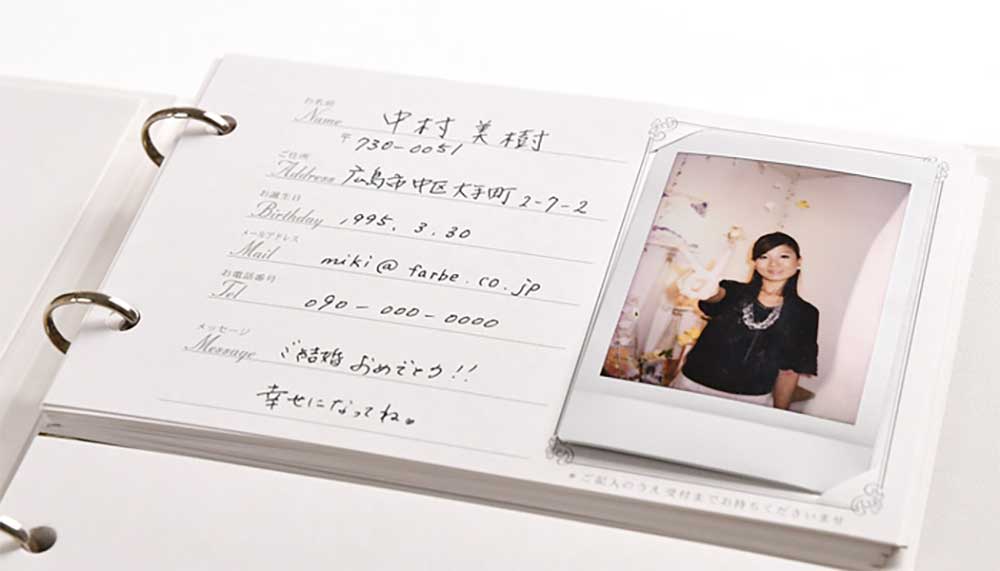 お名前
Name 中村 美樹
〒730-0051
ご住所
Address 広島市中区大手町 2-7-2
お誕生日
Birthday 1995. 3. 30
メールアドレス
Mail miki@farbe.co.jp
お電話番号
Tel 090-000-0000
メッセージ
Message ご結婚おめでとう!!
幸せになってね。
＊ご記入のうえ受付までお持ちくださいませ